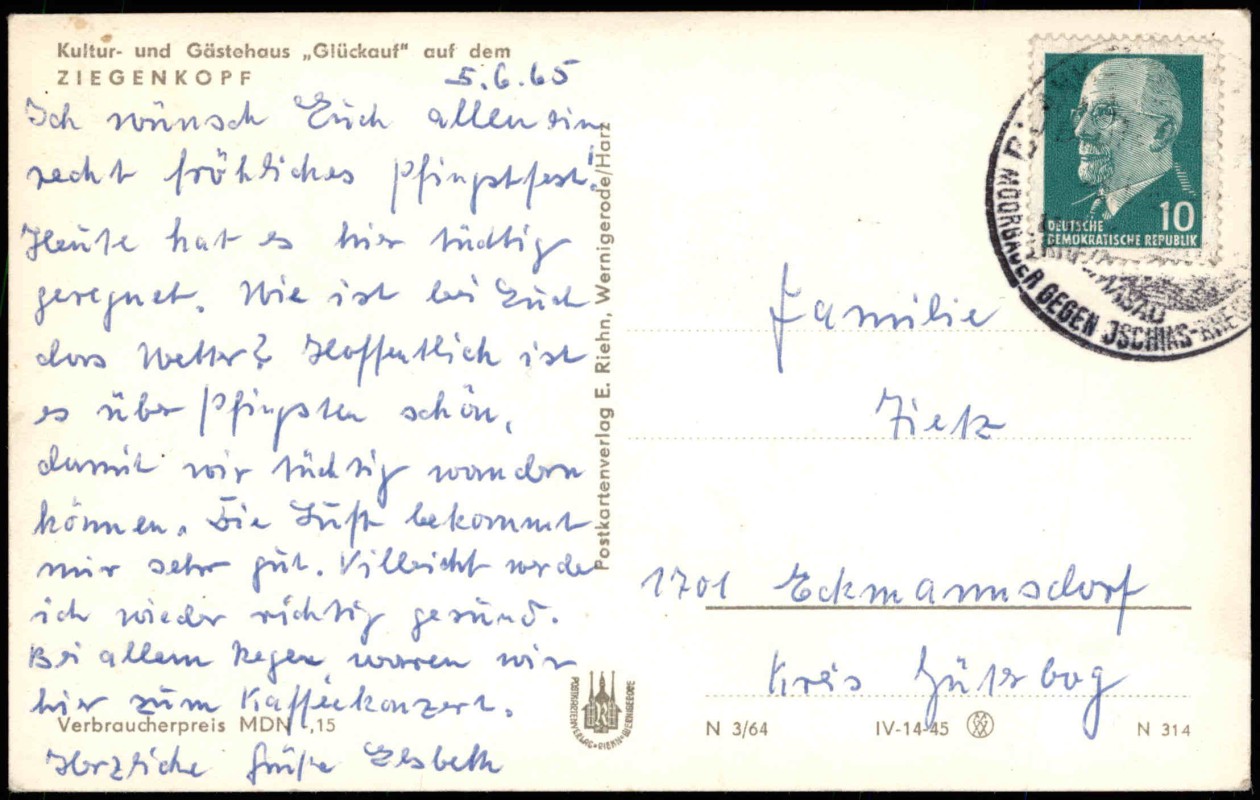 Kultur- und Gästehaus „Glückauf" auf dem
ZIEGENKOPF
5.6.65
Ich wünsch Euch allen ein
recht fröhliches Pfingstfest!
Heute hat es hier tüchtig
geregnet. Wie ist bei Euch
das Wetter? Hoffentlich ist
es über Pfingsten schön,
damit wir tüchtig wandern
können. Die Luft bekommt
mir sehr gut. Villeicht werde
ich wieder richtig gesund.
Bei allem Regen waren wir
hier zum Kaffeekonzert.
Verbraucherpreis MDN ,15
Herzliche Grüße Elsbeth
Postkartenverlag E. Riehn, Wernigerode/Harz
POSTKARTENVERLAG · RIEHN · WERNIGERODE
10
DEUTSCHE
DEMOKRATISCHE REPUBLIK
GEGEN JSCHIAS
Familie
Zietz
1701 Eckmannsdorf
Kreis Jüterbog
N 3/64
IV-14-45
N 314